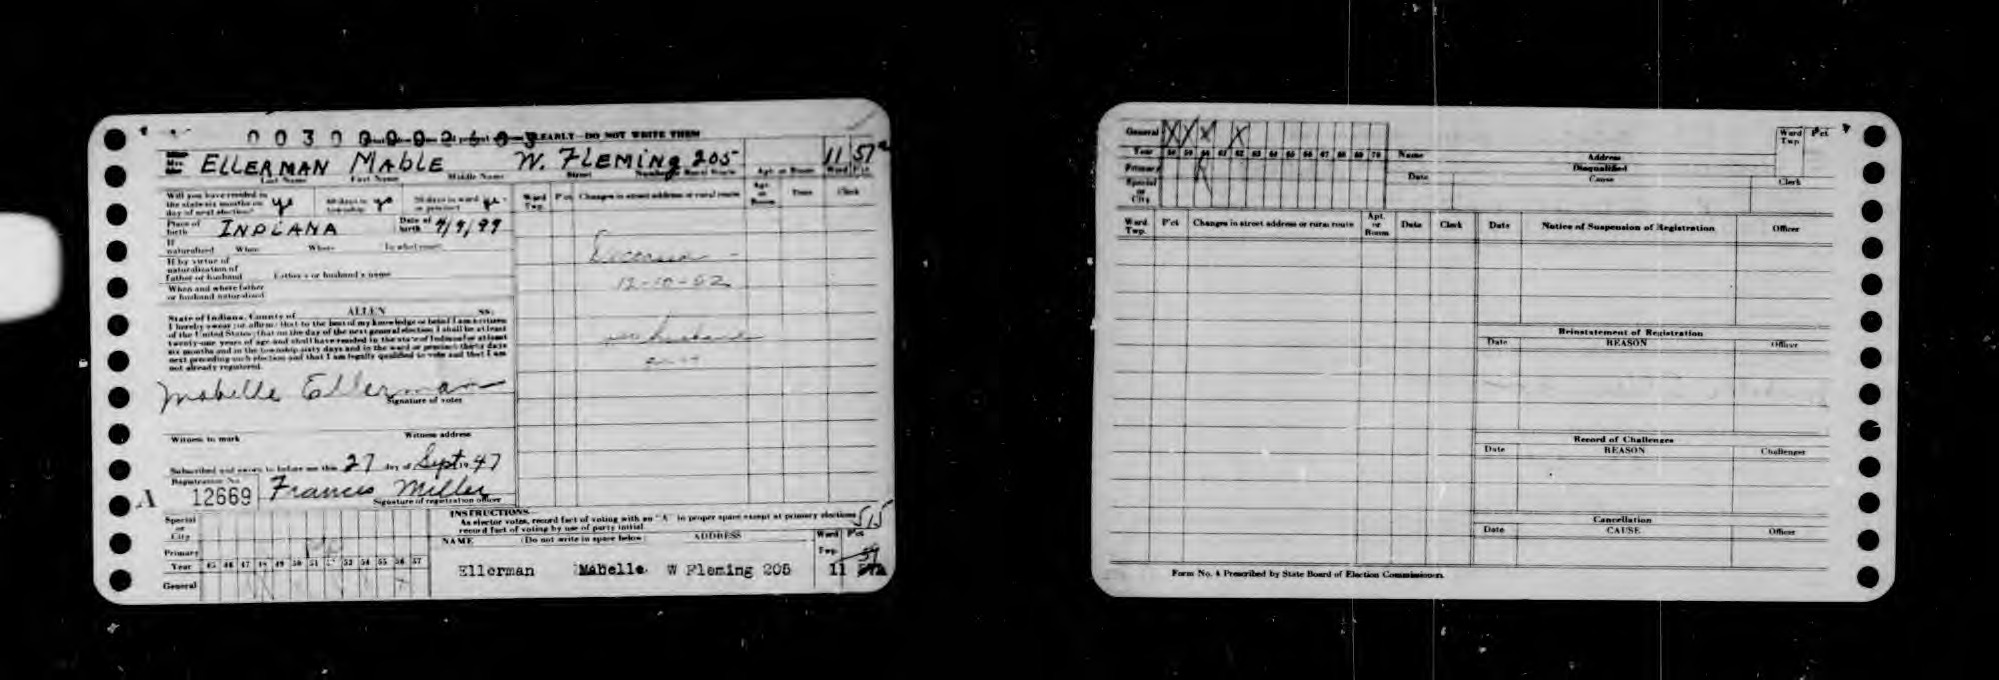 ELLERMAN MABLE W. FLEMING 205 11 57a
Last Name First Name Middle Name Street Number or Rural Route Apt. or Room Ward Pct.
Will you have resided in
the state six months on
day of next election? ye
60 days in
township ye
30 days in ward
or precinct ye
Ward
Twp.
Pct Changes in street address or rural route
Apt.
or
Room
Date Clerk
Place of
birth INDIANA
Date of
birth 4/9/99
If
naturalized When Where In what court
If by virtue of
naturalization of
father or husband Father's or husband's name
When and where father
or husband naturalized
Deceased -
12-10-62
State of Indiana, County of ALLEN SS:
I hereby swear (or affirm) that to the best of my knowledge or belief I am a citizen
of the United States; that on the day of the next general election I shall be at least
twenty-one years of age and shall have resided in the state of Indiana for at least
six months and in the township sixty days and in the ward or precinct thirty days
next preceding such election and that I am legally qualified to vote and that I am
not already registered.
husband
Mabelle Ellerman
Signature of voter
Witness to mark Witness address
Subscribed and sworn to before me this 27 day of Sept 1947
Registration No.
A 12669 Francis Miller
Signature of registration officer
Special
or
City
Primary
Year 45 46 47 48 49 50 51 52 53 54 55 56 57
General
INSTRUCTIONS
As elector votes, record fact of voting with an "X" in proper space except at primary elections
record fact of voting by use of party initial
515
NAME (Do not write in space below) ADDRESS Ward Pct
Twp.
Ellerman Mabelle W Fleming 205 11
General X X X X
Year 58 59 60 61 62 63 64 65 66 67 68 69 70
Primary R
Special
or
City
Name Address
Ward
Twp.
Pct.
Disqualified
Date Cause Clerk
Ward
Twp.
Pct Changes in street address or rural route
Apt.
or
Room
Date Clerk
Date Notice of Suspension of Registration Officer
Reinstatement of Registration
Date REASON Officer
Record of Challenges
Date REASON Challenger
Cancellation
Date CAUSE Officer
Form No. 4 Prescribed by State Board of Election Commissioners.